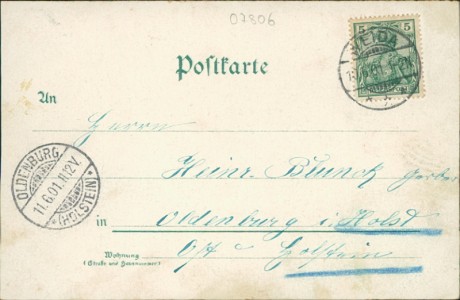 07806
5 5
HEIDA
Postkarte
An
Herrn
Heinr. Blunck
OLDENBURG
11.6.01.11-12V.
*(HOLSTEIN)*
in Oldenburg i. Holst
Wohnung
(Straße und Hausnummer)
Holstein